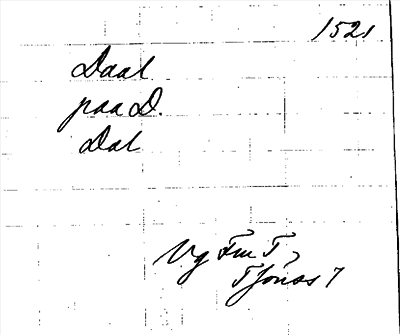 1521
Daal
paa D.
Dal
Vg Fm T,
Tjöuss 7